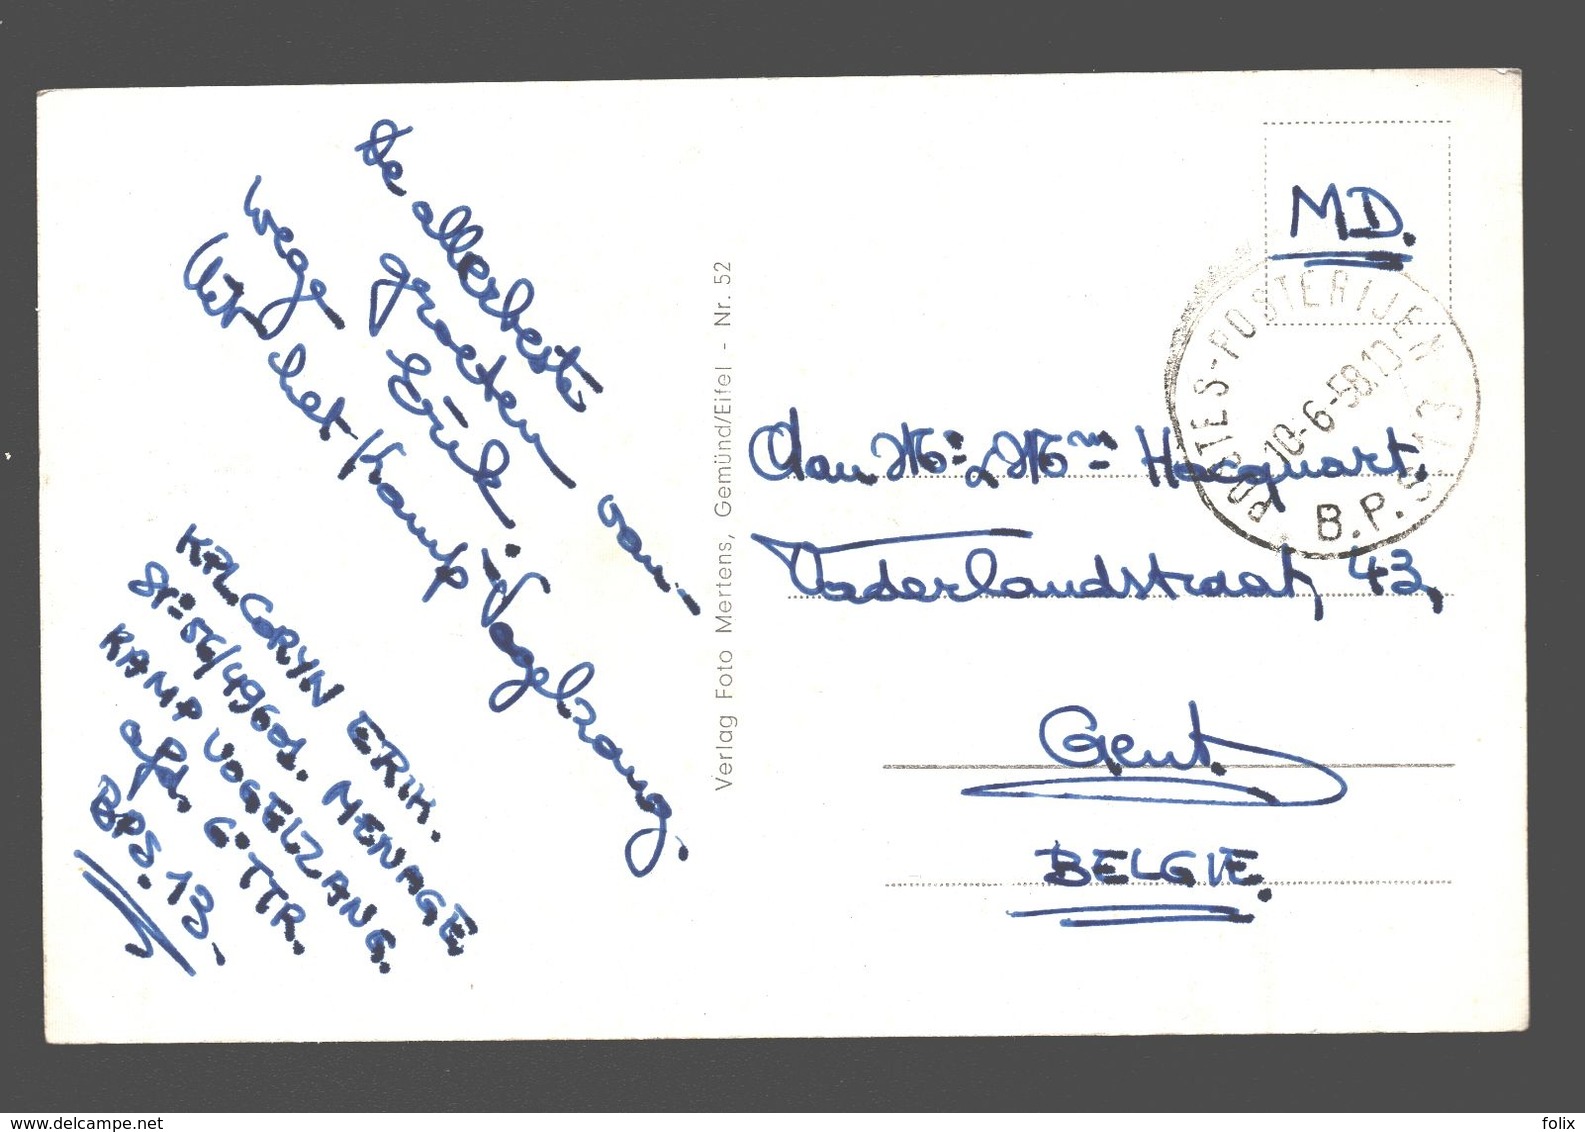 De allerbeste
groeten van-
wege Erik.
Uit het Kamp Vogelzang.
KPL CORYN ERIK.
St: 56/49601. MENAGE
KAMP VOGELZANG.
afd. C. TTR.
BPS. 13.
Verlag Foto Mertens, Gemünd/Eifel - Nr. 52
MD.
POSTES-POSTERIJEN
10-6-58.10
B.P.S. 13
Aan Mr & Mme Hocquart.
Vaderlandstraat, 43,
Gent.
BELGIE.
www.delcampe.net
folix